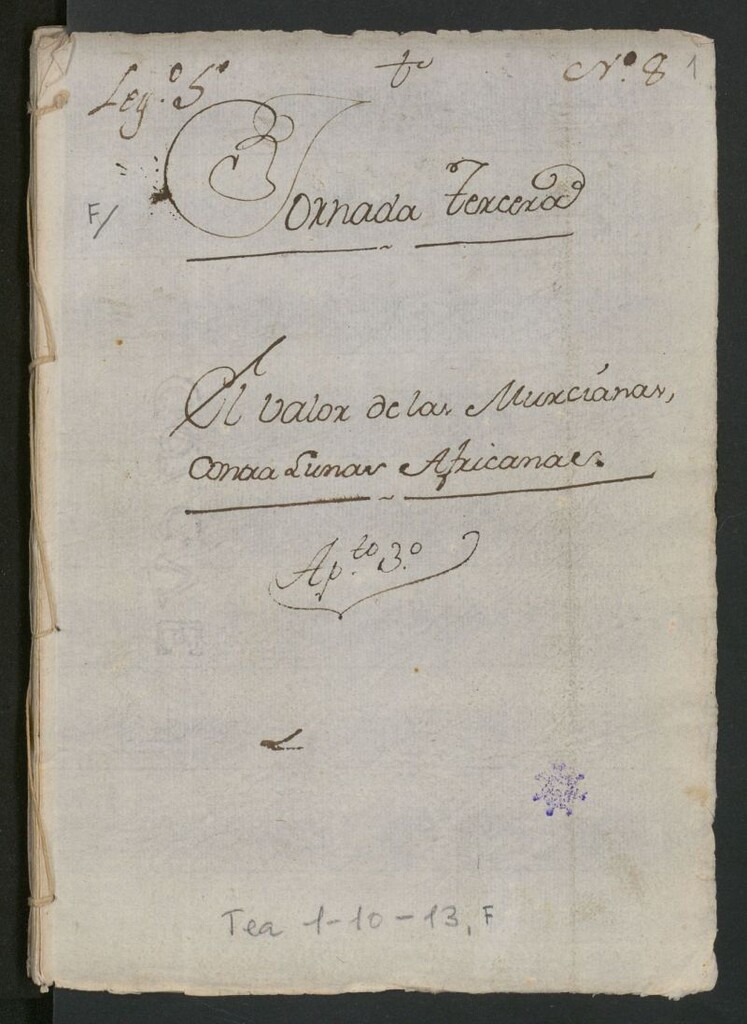 Leg.º 5º
Nº. 8
1
Jornada tercera
F/
El Valor de las Murcianas,
Contra Lunas Africanas.
Ap.to 3.º
Tea 1-10-13, F